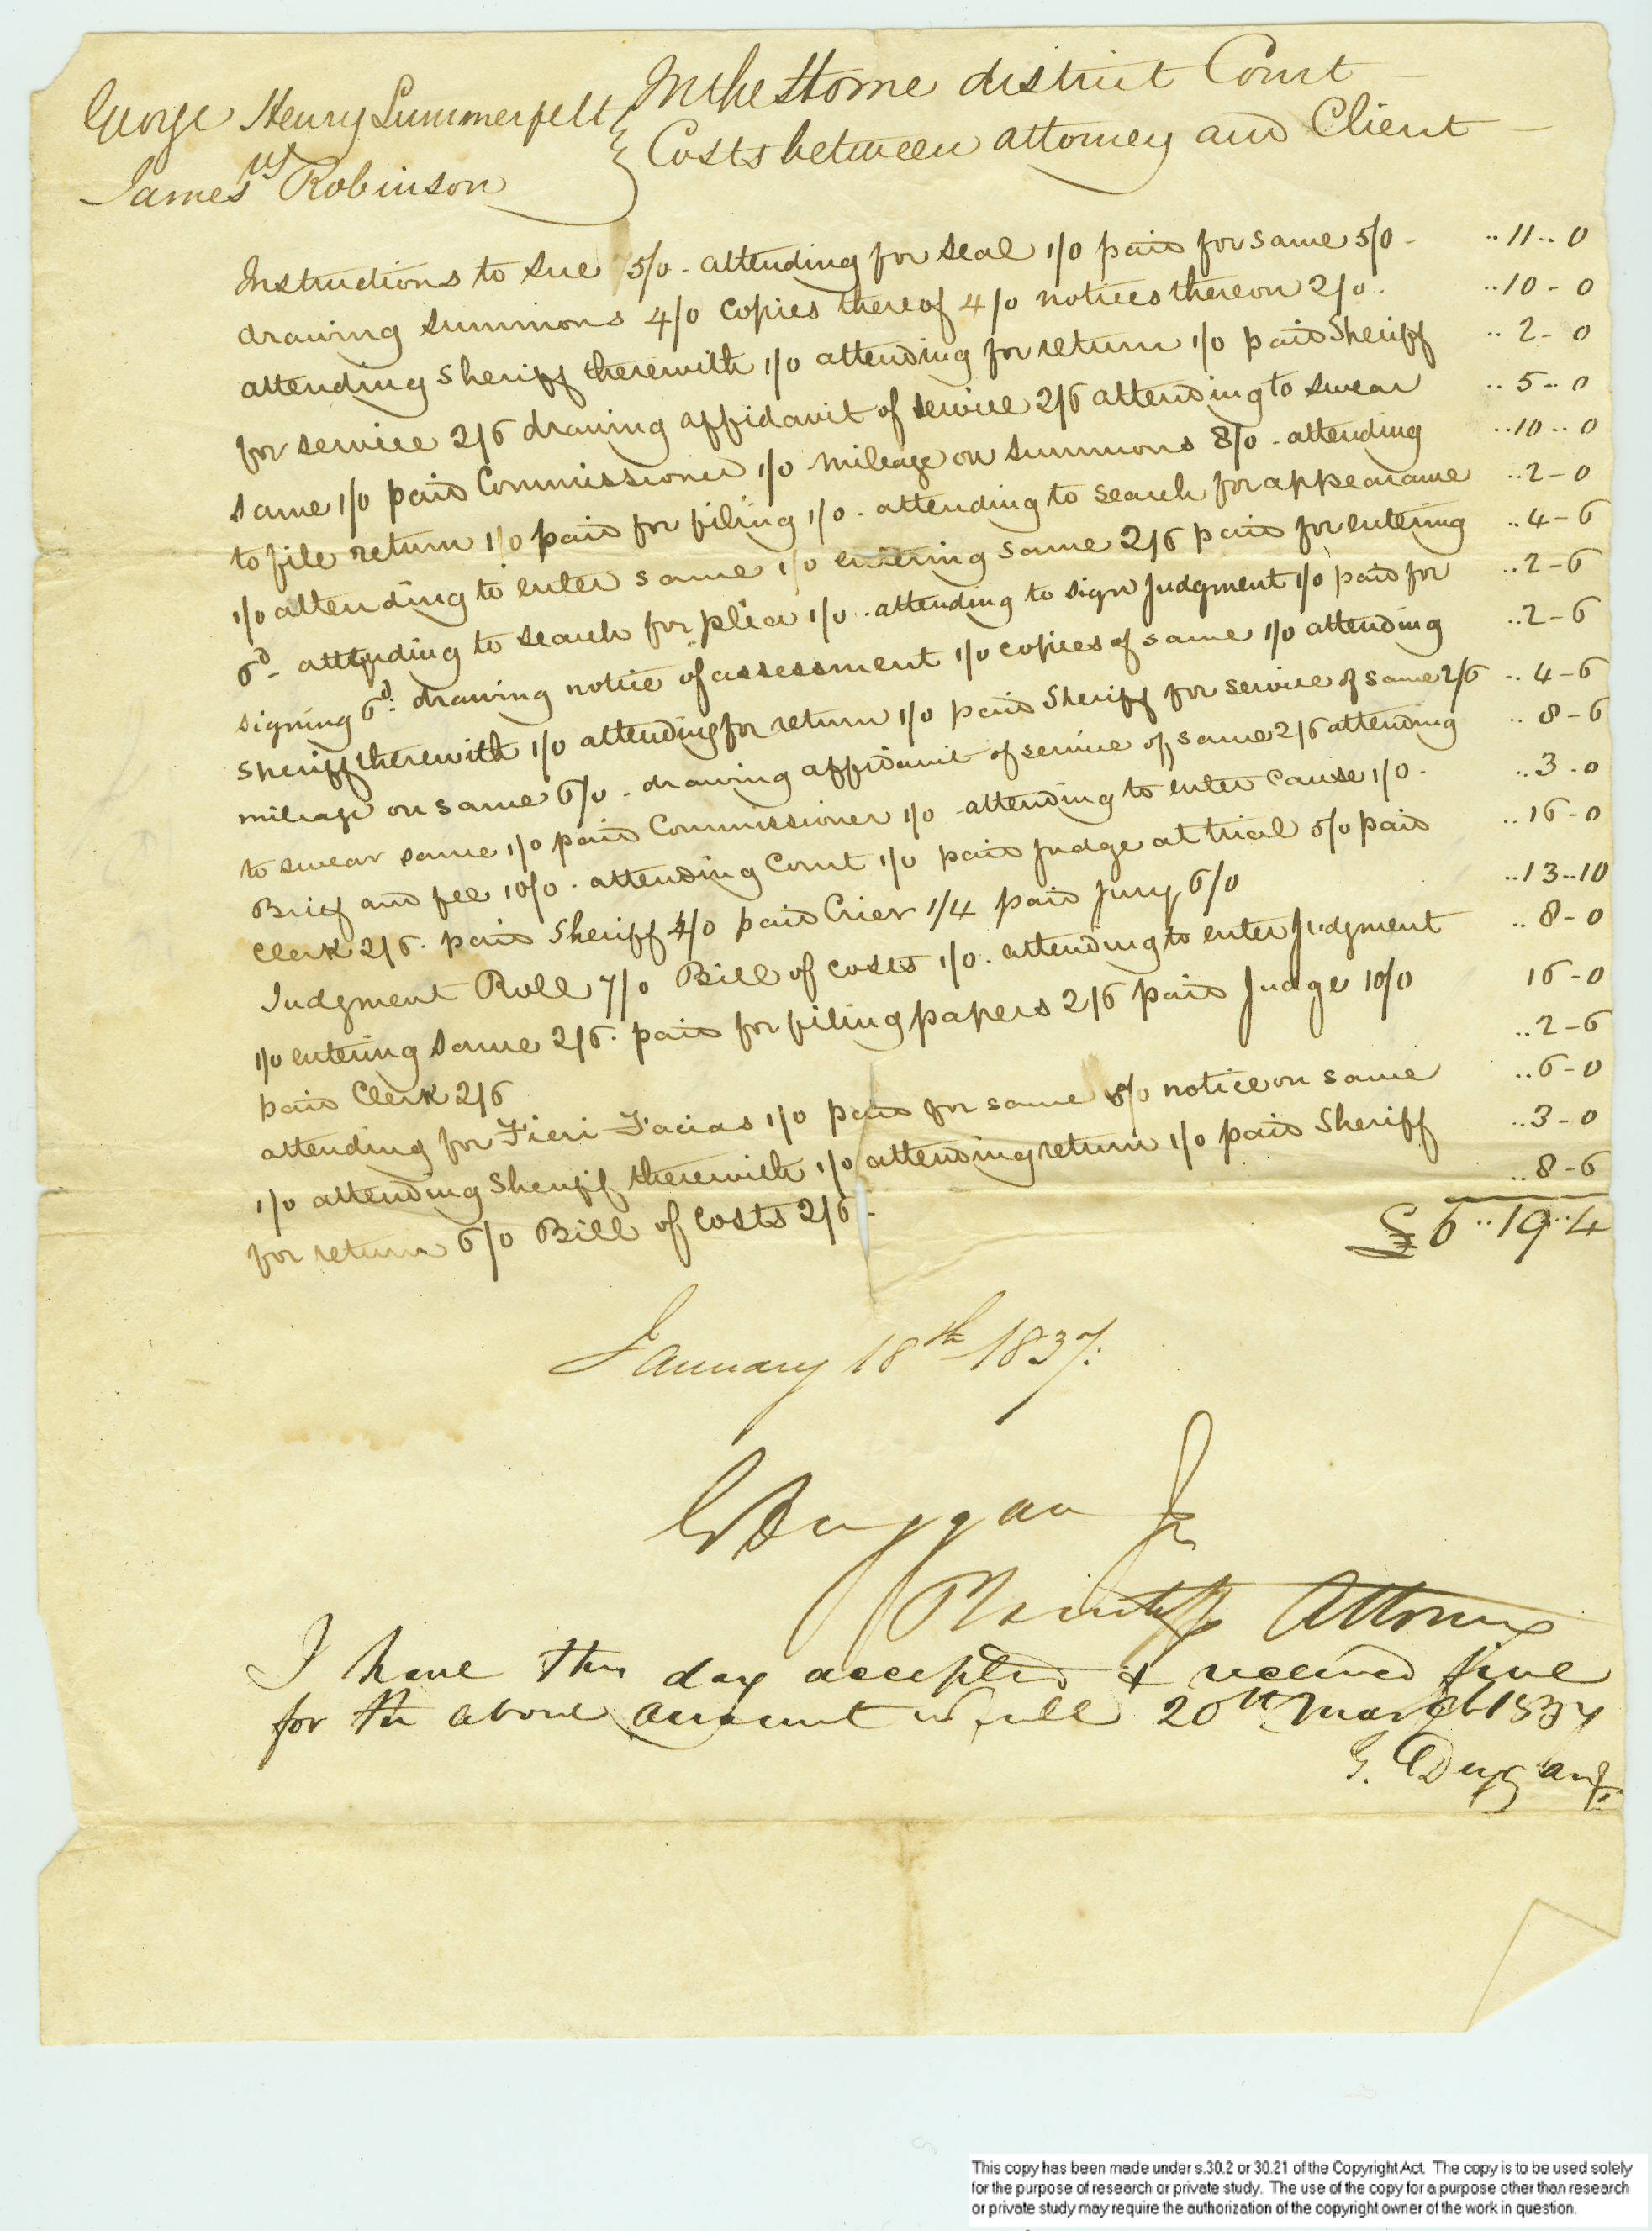 George Henry Summerfelt
vs
James Robinson
In the Home district Court
Costs between attorney and Client
Instructions to sue 5/0 - attending for seal 1/0 paid for same 5/0 - .. 11 .. 0
drawing summons 4/0 copies thereof 4/0 notices thereon 2/0 . .. 10 - 0
attending Sheriff therewith 1/0 attending for return 1/0 paid Sheriff .. 2 - 0
for service 2/6 drawing affidavit of service 2/6 attending to swear .. 5 .. 0
same 1/0 paid Commissioner 1/0 mileage on summons 8/0 - attending .. 10 .. 0
to file return 1/0 paid for filing 1/0 - attending to search for appearance .. 2 - 0
1/0 attending to enter same 1/0 entering same 2/6 paid for entering .. 4 - 6
6d - attending to search for plea 1/0 . attending to sign Judgment 1/0 paid for .. 2 - 6
signing 6d. drawing notice of assessment 1/0 copies of same 1/0 attending .. 2 - 6
Sheriff therewith 1/0 attending for return 1/0 paid Sheriff for service of same 2/6 .. 4 - 6
mileage on same 6/0 - drawing affidavit of service of same 2/6 attending .. 8 - 6
to swear same 1/0 paid Commissioner 1/0 - attending to enter cause 1/0 . .. 3 - 0
Brief and fee 10/0 . attending Court 1/0 paid Judge at trial 5/0 paid .. 16 - 0
Clerk 2/6 . paid Sheriff 4/0 paid Crier 1/4 paid Jury 6/0 .. 13 .. 10
Judgment Roll 7/0 Bill of costs 1/0 . attending to enter Judgment .. 8 - 0
1/0 entering same 2/6 . paid for filing papers 2/6 paid Judge 10/0 16 - 0
paid Clerk 2/6 .. 2 - 6
attending for Fieri Facias 1/0 paid for same 5/0 notice on same .. 6 - 0
1/0 attending Sheriff therewith 1/0 attending return 1/0 paid Sheriff .. 3 - 0
for return 6/0 Bill of Costs 2/6 - .. 8 - 6
£ 6 .. 19 .. 4
January 18th 1837.
G Duggan Jr
Plaintiffs Attorney
I have this day accepted & received
for the above amount in full 20th March 1837
G. Duggan Jr
This copy has been made under s.30.2 or 30.21 of the Copyright Act. The copy is to be used solely
for the purpose of research or private study. The use of the copy for a purpose other than research
or private study may require the authorization of the copyright owner of the work in question.